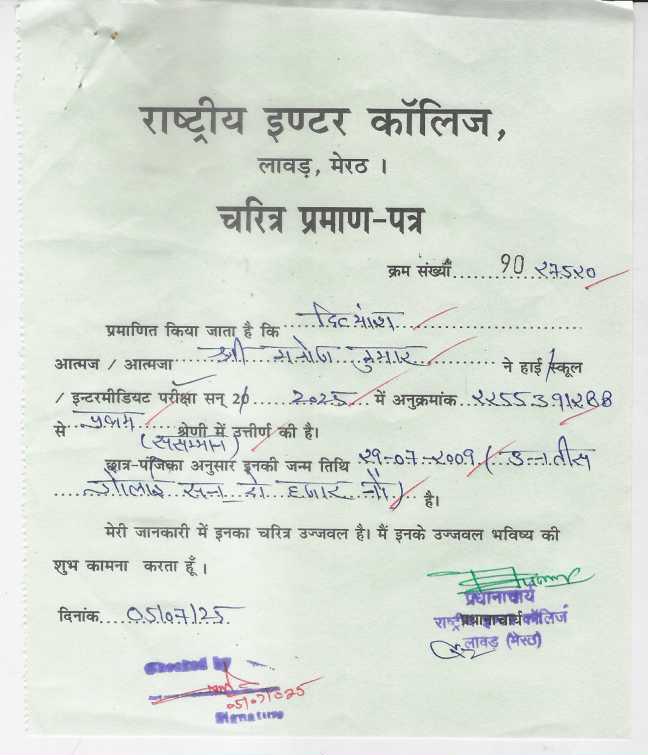 राष्ट्रीय इण्टर कॉलिज,
लावड़, मेरठ ।
चरित्र प्रमाण-पत्र
क्रम संख्याँ......90 २७५२०
प्रमाणित किया जाता है कि दिव्यांश
आत्मज / आत्मजा श्री मनोज कुमार ने हाई स्कूल
/ इन्टरमीडियट परीक्षा सन् 20 2025 में अनुक्रमांक
से प्रथम श्रेणी में उत्तीर्ण की है।
(ससम्मान)
छात्र-पंजिका अनुसार इनकी जन्म तिथि २९-०७-२००९ (उन्तीस
जौलाई सन दो हजार नौ) है।
मेरी जानकारी में इनका चरित्र उज्जवल है। मैं इनके उज्जवल भविष्य की
शुभ कामना करता हूँ ।
दिनांक....05/07/25
प्रधानाचार्य
राष्ट्रीय कॉलिज
लावड़ (मेरठ)
Checked by
05/07/025
Signature